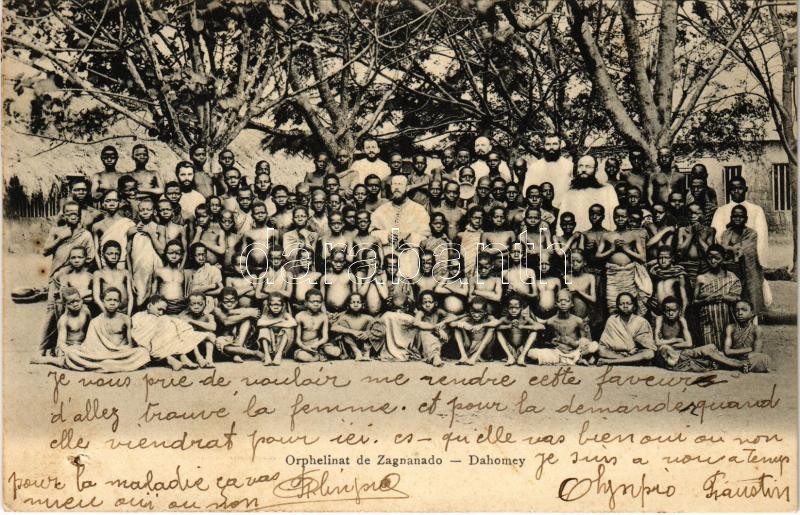 darabanth.com
Je vous prie de vouloir me rendre cette faveur
d'allez trouvé la femme. et pour la demande quand
elle viendrat pour ici. es-qu'elle vas bien oui ou non
Orphelinat de Zagnanado — Dahomey
Je suis a
pour la maladie ça vas
mieu oui ou non
Olympio